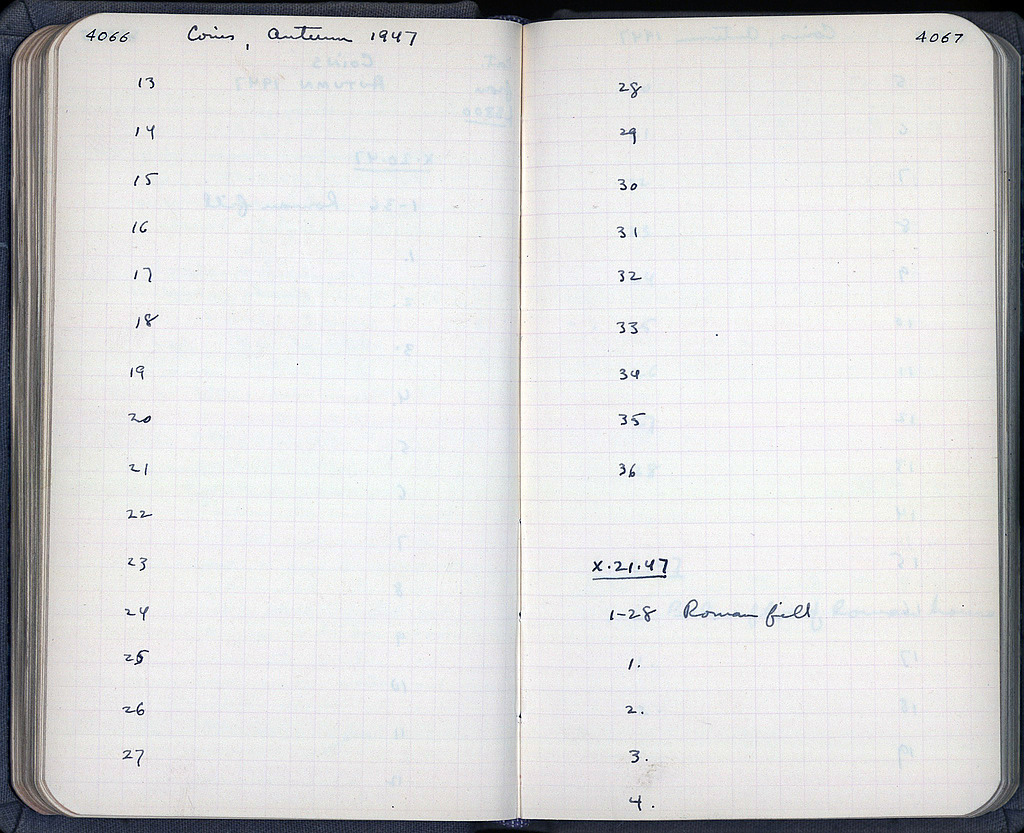 4066 Coins, Autumn 1947
13
14
15
16
17
18
19
20
21
22
23
24
25
26
27
4067
28
29
30
31
32
33
34
35
36
X·21·47
1-28 Roman fill
1.
2.
3.
4.